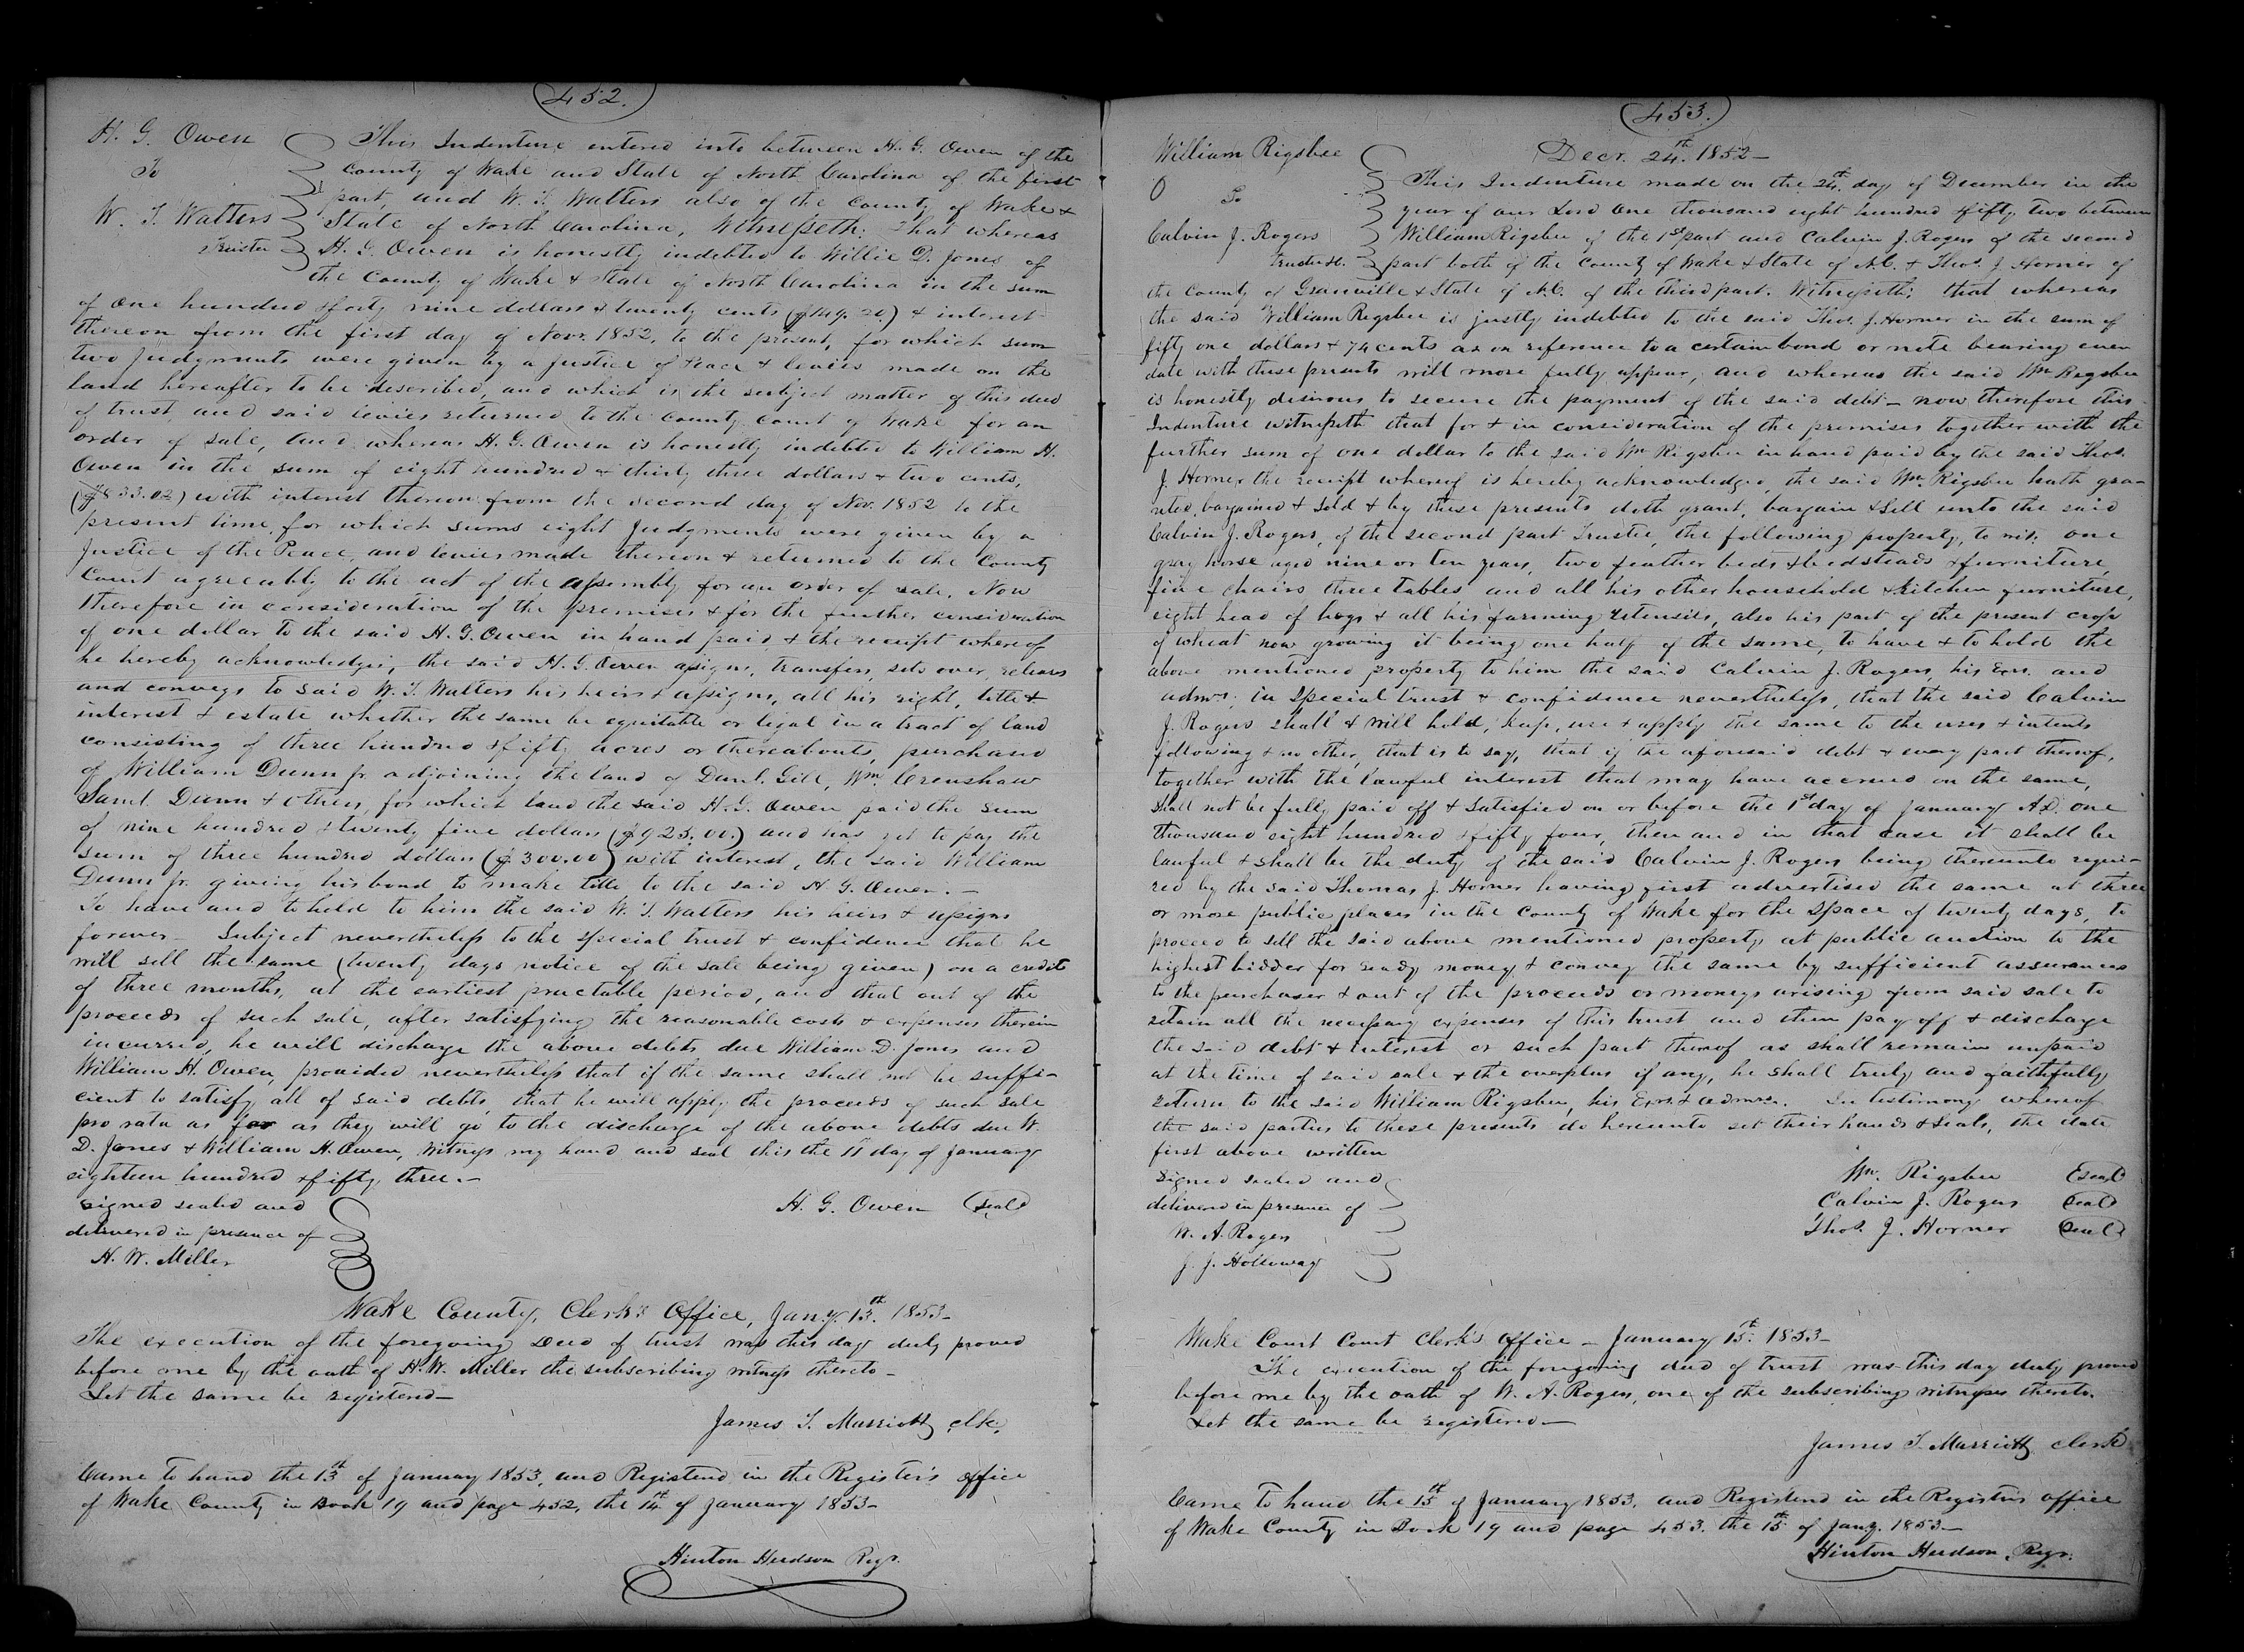 452.
H. G. Owen
To
W. T. Walters
Trustee
This Indenture entered into between H. G. Owen of the
County of Wake and State of North Carolina of the first
part, and W. T. Walters also of the County of Wake &
State of North Carolina, Witnesseth: That whereas
H. G. Owen is honestly indebted to Willie D. Jones of
the County of Wake & State of North Carolina in the sum
of One hundred & forty nine dollars & twenty cents ($149.20) & interest
thereon from the first day of Novr. 1852, to the present, for which sum
two judgments were given by a justice of Peace & levies made on the
land hereafter to be described, and which is the subject matter of this deed
of trust, and said levies returned to the County Court of Wake for an
order of sale, and whereas H. G. Owen is honestly indebted to William H.
Owen in the sum of eight hundred & thirty three dollars & two cents,
($833.02) with interest thereon from the second day of Nov. 1852 to the
present time, for which sums eight Judgments were given by a
Justice of the Peace, and levies made thereon & returned to the County
Court agreeably to the act of the assembly for an order of sale. Now
therefore in consideration of the premises & for the further consideration
of one dollar to the said H. G. Owen in hand paid & the receipt whereof
he hereby acknowledges, the said H. G. Owen assigns, transfers, sets over, releases
and conveys to said W. T. Walters his heirs & assigns, all his right, title &
interest & estate whether the same be equitable or legal in a tract of land
consisting of three hundred & fifty acres or thereabouts, purchased
of William Dunn Jr. adjoining the land of Danl. Gill, Wm. Crenshaw
Saml. Dunn & others, for which land the said H. G. Owen paid the sum
of nine hundred & twenty five dollars ($925.00.) and has yet to pay the
sum of three hundred dollars ($300.00) with interest, the said William
Dunn Jr. giving his bond to make title to the said H. G. Owen. —
To have and to hold to him the said W. T. Walters his heirs & assigns
forever — Subject nevertheless to the special trust & confidence that he
will sell the same (twenty days notice of the sale being given) on a credit
of three months, at the earliest practable period, and that out of the
proceeds of such sale, after satisfying the reasonable costs & expenses therein
incurred, he will discharge the above debts due William D. Jones and
William H. Owen, provided nevertheless that if the same shall not be suffi-
cient to satisfy all of said debts, that he will apply the proceeds of such sale
pro rata as far as they will go to the discharge of the above debts due W.
D. Jones & William H. Owen, Witness my hand and seal this the 11 day of January
eighteen hundred & fifty three. —
Signed sealed and
delivered in presence of
H. W. Miller
H. G. Owen (seal)
Wake County, Clerk's Office, Jany. 13th. 1853—
The execution of the foregoing Deed of trust was this day duly proved
before me by the oath of H. W. Miller the subscribing witness thereto —
Let the same be registered —
James T. Marriott clk.
Came to hand the 13th of January 1853, and Registered in the Register's office
of Wake County in Book 19 and page 452, the 14th of January 1853—
Hinton Hudson Regr.
453.
William Rigsbee
To
Calvin J. Rogers
Trustee.
Decr. 24th. 1852—
This Indenture made on the 24th. day of December in the
year of our Lord One thousand eight hundred & fifty two between
William Rigsbee of the 1st part and Calvin J. Rogers of the second
part both of the County of Wake & State of N.C. & Thos. J. Horner of
the County of Granville & State of N.C. of the third part. Witnesseth; that whereas
the said William Rigsbee is justly indebted to the said Thos. J. Horner in the sum of
fifty one dollars & 74 cents as on reference to a certain bond or note bearing even
date with these presents will more fully appear, and whereas the said Wm Rigsbee
is honestly desirous to secure the payment of the said debt — now therefore this
Indenture witnesseth that for & in consideration of the premises together with the
further sum of one dollar to the said Wm Rigsbee in hand paid by the said Thos.
J. Horner the receipt whereof is hereby acknowledged, the said Wm. Rigsbee hath gra-
nted, bargained & sold & by these presents doth grant, bargain & sell unto the said
Calvin J. Rogers, of the second part Trustee, the following property, to wit: one
gray horse aged nine or ten years, two feather beds & bedsteads & furniture,
five chairs three tables and all his other household & kitchen furniture,
eight head of hogs & all his farming utensils, also his part of the present crop
of wheat now growing it being one half of the same, to have & to hold the
above mentioned property to him the said Calvin J. Rogers, his Exrs. and
admrs. in special trust & confidence nevertheless, that the said Calvin
J. Rogers shall & will hold, keep, use & apply the same to the uses & intents
following & no other, that is to say, that if the aforesaid debt & every part thereof,
together with the lawful interest that may have accrued on the same,
shall not be fully paid off & satisfied on or before the 1st day of January A.D. one
thousand eight hundred & fifty four, then and in that case it shall be
lawful & shall be the duty of the said Calvin J. Rogers being thereunto requi-
red by the said Thomas J. Horner having first advertised the same at three
or more public places in the County of Wake for the space of twenty days, to
proceed to sell the said above mentioned property at public auction to the
highest bidder for ready money & convey the same by sufficient assurances
to the purchaser & out of the proceeds or moneys arising from said sale to
retain all the necessary expenses of this trust and then pay off & discharge
the said debt & interest or such part thereof as shall remain unpaid
at the time of said sale & the overplus if any, he shall truly and faithfully
return to the said William Rigsbee, his Exrs. & admrs. In testimony whereof
the said parties to these presents do hereunto set their hands & seals, the date
first above written
Signed sealed and
delivered in presence of
W. A. Rogers
J. J. Holloway
Wm. Rigsbee (seal)
Calvin J. Rogers (seal)
Thos. J. Horner (seal)
Wake Court Court Clerk's office — January 15th. 1853—
The execution of the foregoing deed of trust was this day duly proved
before me by the oath of W. A. Rogers, one of the subscribing witnesses thereto.
Let the same be registered—
James T. Marriott clerk
Came to hand the 15th of January 1853, and Registered in the Registers office
of Wake County in Book 19 and page 453. the 15th of Jany. 1853—
Hinton Hudson, Regr.